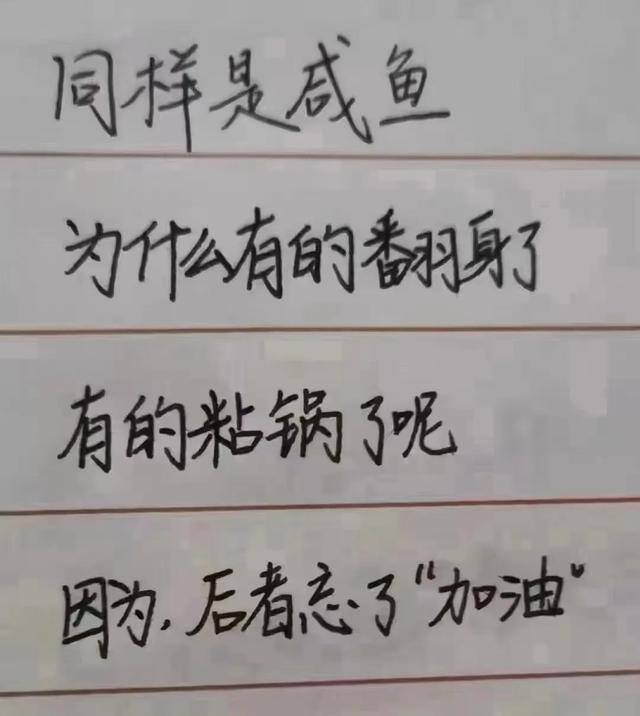 同样是咸鱼
为什么有的翻身了
有的粘锅了呢
因为,后者忘了“加油”